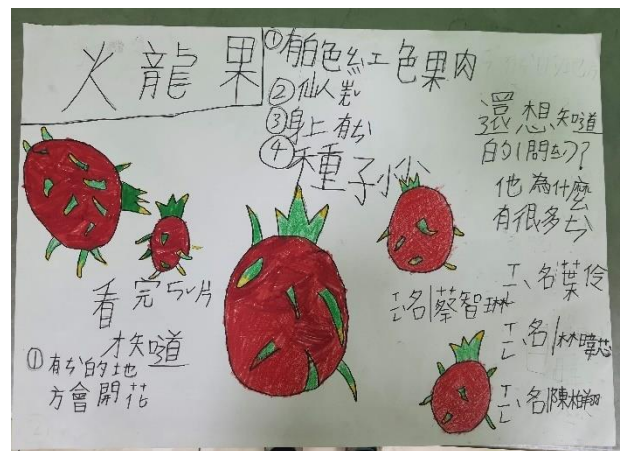 火龍果
①有白色紅色果肉
②仙人掌
③身上有ㄘ
④種子小小
還想知道
的(問ㄊ)?
他為什麼
有很多ㄘ
看完ㄥ片
才知道
①有ㄘ的地
方會開花
ㄒㄧㄥ名蔡智琳
ㄒㄧㄥ名葉伶
ㄒㄧㄥ名林暐芯
ㄒㄧㄥ名陳柏翔